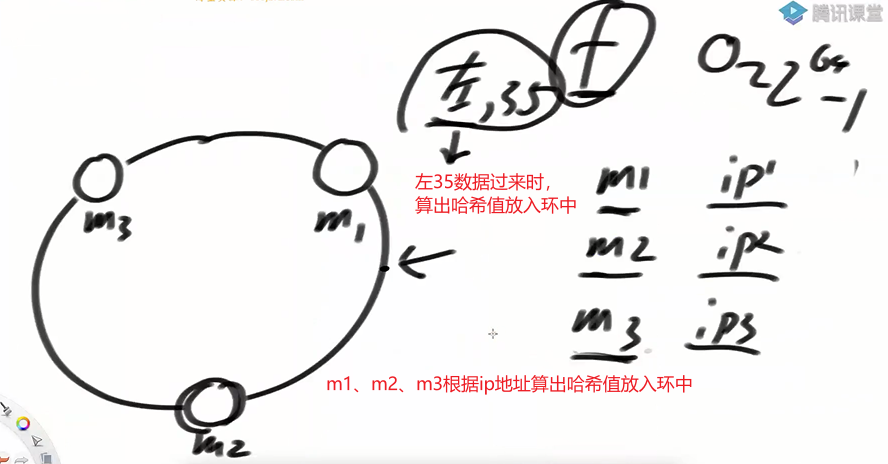 腾讯课堂
左,35
f
0~2^64-1
左35数据过来时,
算出哈希值放入环中
m1 ip1
m2 ip2
m3 ip3
m3
m1
m2
m1、m2、m3根据ip地址算出哈希值放入环中